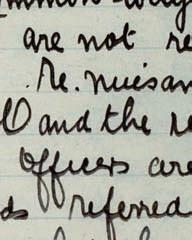 are not re
Re. nuisan
and the re
officers are
ds referred